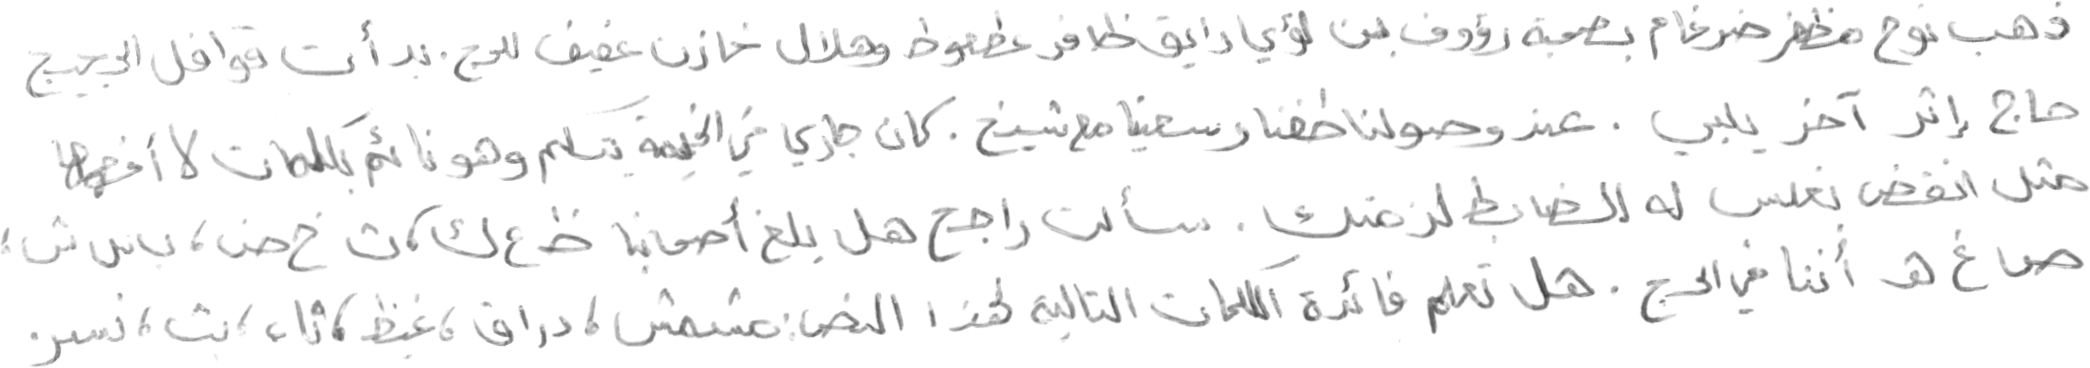 ذهب نوح مظفر ضرغام بصحبة رؤوف بن لؤي رايق ظافر عطعوط وهلال خازن عفيف للحج. بدأت قوافل الحجيج
حاج إثر آخر يلبي. عند وصولنا طفنا وسعينا مع شيخ. كان جاري في الخيمة يتكلم وهو نائم بكلمات لا أفهمها
مثل انفض نغلس له الضابط لزعنك. سألت راجح هل بلغ أصحابنا ظ ع ك، ث خ ض، ب س ش،
ص ا غ هـ أننا في الحج. هل تعلم فائدة الكلمات التالية لهذا النص: مشمش، دراق، غيظ، ثاء، بث، نسر.